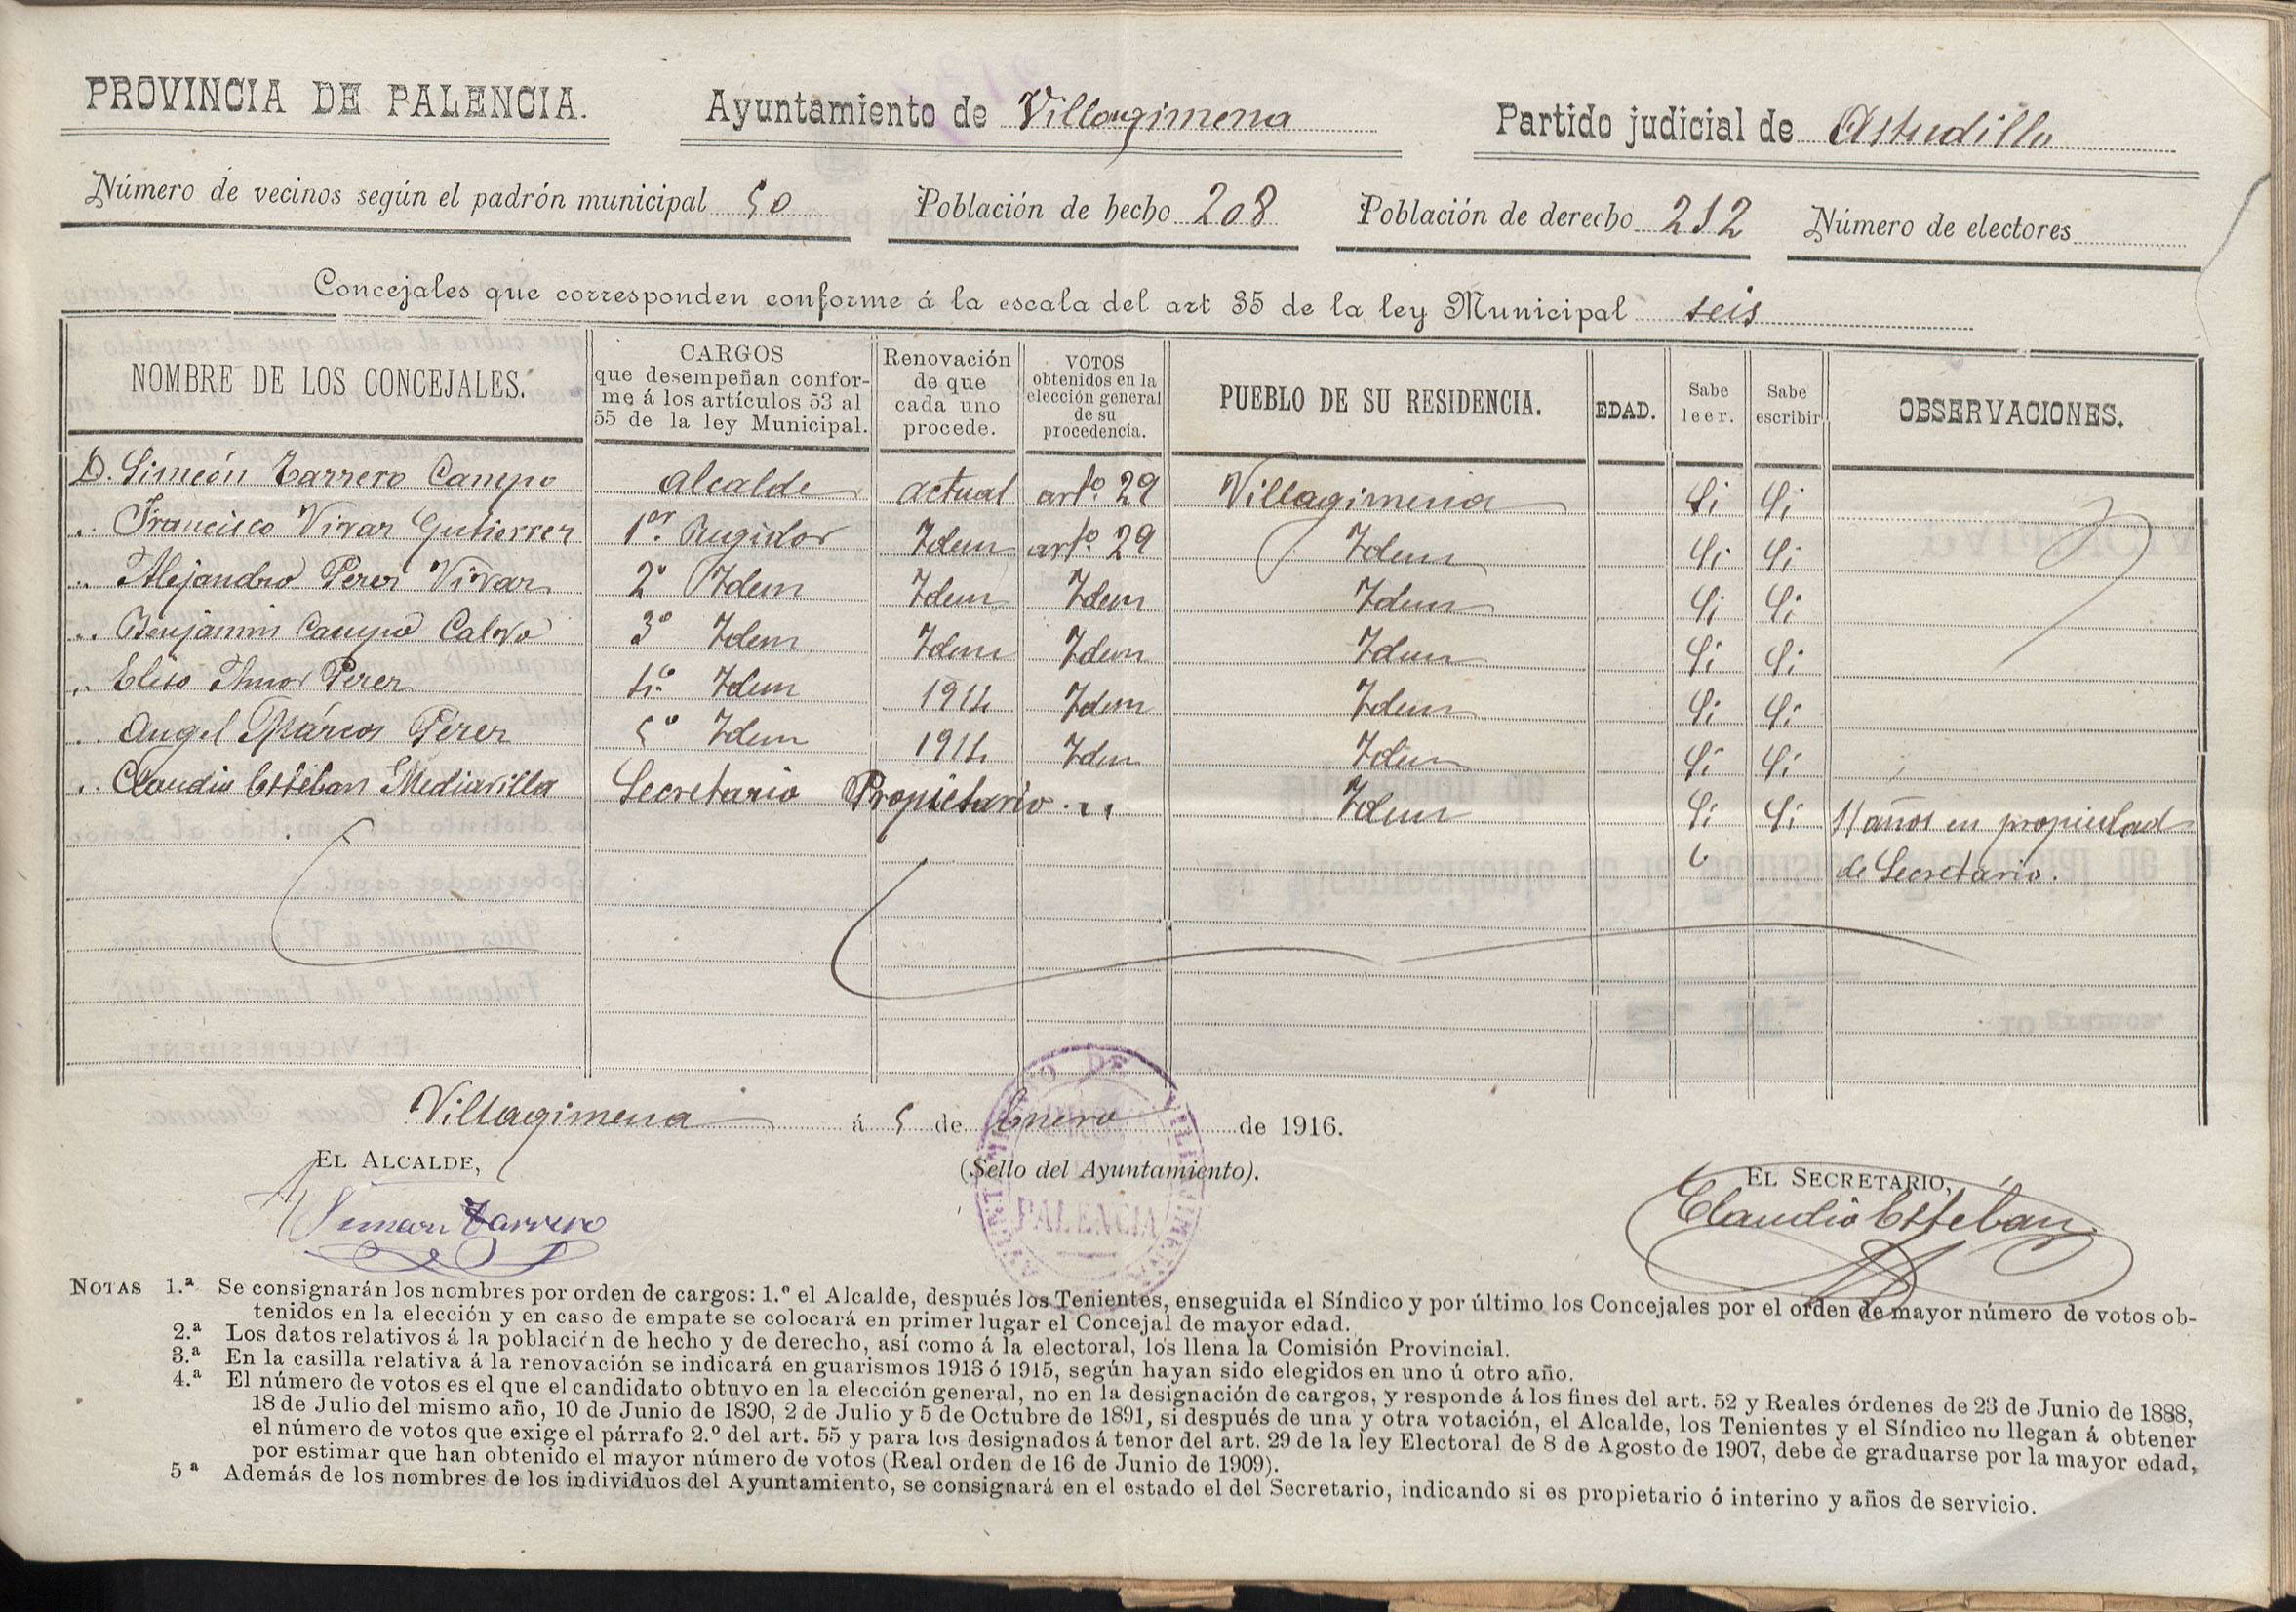 PROVINCIA DE PALENCIA. Ayuntamiento de Villagimena Partido judicial de Astudillo
Número de vecinos según el padrón municipal 50 Población de hecho 208 Población de derecho 212 Número de electores
Concejales que corresponden conforme á la escala del art 35 de la ley Municipal seis
NOMBRE DE LOS CONCEJALES.
CARGOS
que desempeñan confor-
me á los artículos 53 al
55 de la ley Municipal.
Renovación
de que
cada uno
procede.
VOTOS
obtenidos en la
elección general
de su
procedencia.
PUEBLO DE SU RESIDENCIA.
EDAD.
Sabe
leer.
Sabe
escribir
OBSERVACIONES.
D. Simeón Tarrero Campo Alcalde actual artº. 29 Villagimena Si Si
.. Francisco Vivar Gutierrez 1er. Regidor Idem artº. 29 Idem Si Si
.. Alejandro Perez Vivar 2º Idem Idem Idem Idem Si Si
.. Benjamin Campo Calvo 3º Idem Idem Idem Idem Si Si
.. Eliso Amor Perez 4º Idem 1914 Idem Idem Si Si
.. Angel Márcos Perez 5º Idem 1914 Idem Idem Si Si
.. Claudio Estéban Mediavilla Secretario Propietario .. Idem Si Si 11 años en propiedad
de Secretario.
Villagimena á 5 de Enero de 1916.
EL ALCALDE, (Sello del Ayuntamiento). EL SECRETARIO,
Simeon Tarrero
Claudio Estéban
AYUNTAMIENTO DE VILLAJIMENA
PALENCIA
NOTAS 1.ª Se consignarán los nombres por orden de cargos: 1.º el Alcalde, después los Tenientes, enseguida el Síndico y por último los Concejales por el orden de mayor número de votos ob-
tenidos en la elección y en caso de empate se colocará en primer lugar el Concejal de mayor edad.
2.ª Los datos relativos á la población de hecho y de derecho, así como á la electoral, los llena la Comisión Provincial.
3.ª En la casilla relativa á la renovación se indicará en guarismos 1913 ó 1915, según hayan sido elegidos en uno ú otro año.
4.ª El número de votos es el que el candidato obtuvo en la elección general, no en la designación de cargos, y responde á los fines del art. 52 y Reales órdenes de 23 de Junio de 1888,
18 de Julio del mismo año, 10 de Junio de 1890, 2 de Julio y 5 de Octubre de 1891, si después de una y otra votación, el Alcalde, los Tenientes y el Síndico no llegan á obtener
el número de votos que exige el párrafo 2.º del art. 55 y para los designados á tenor del art. 29 de la ley Electoral de 8 de Agosto de 1907, debe de graduarse por la mayor edad,
por estimar que han obtenido el mayor número de votos (Real orden de 16 de Junio de 1909).
5ª Además de los nombres de los individuos del Ayuntamiento, se consignará en el estado el del Secretario, indicando si es propietario ó interino y años de servicio.